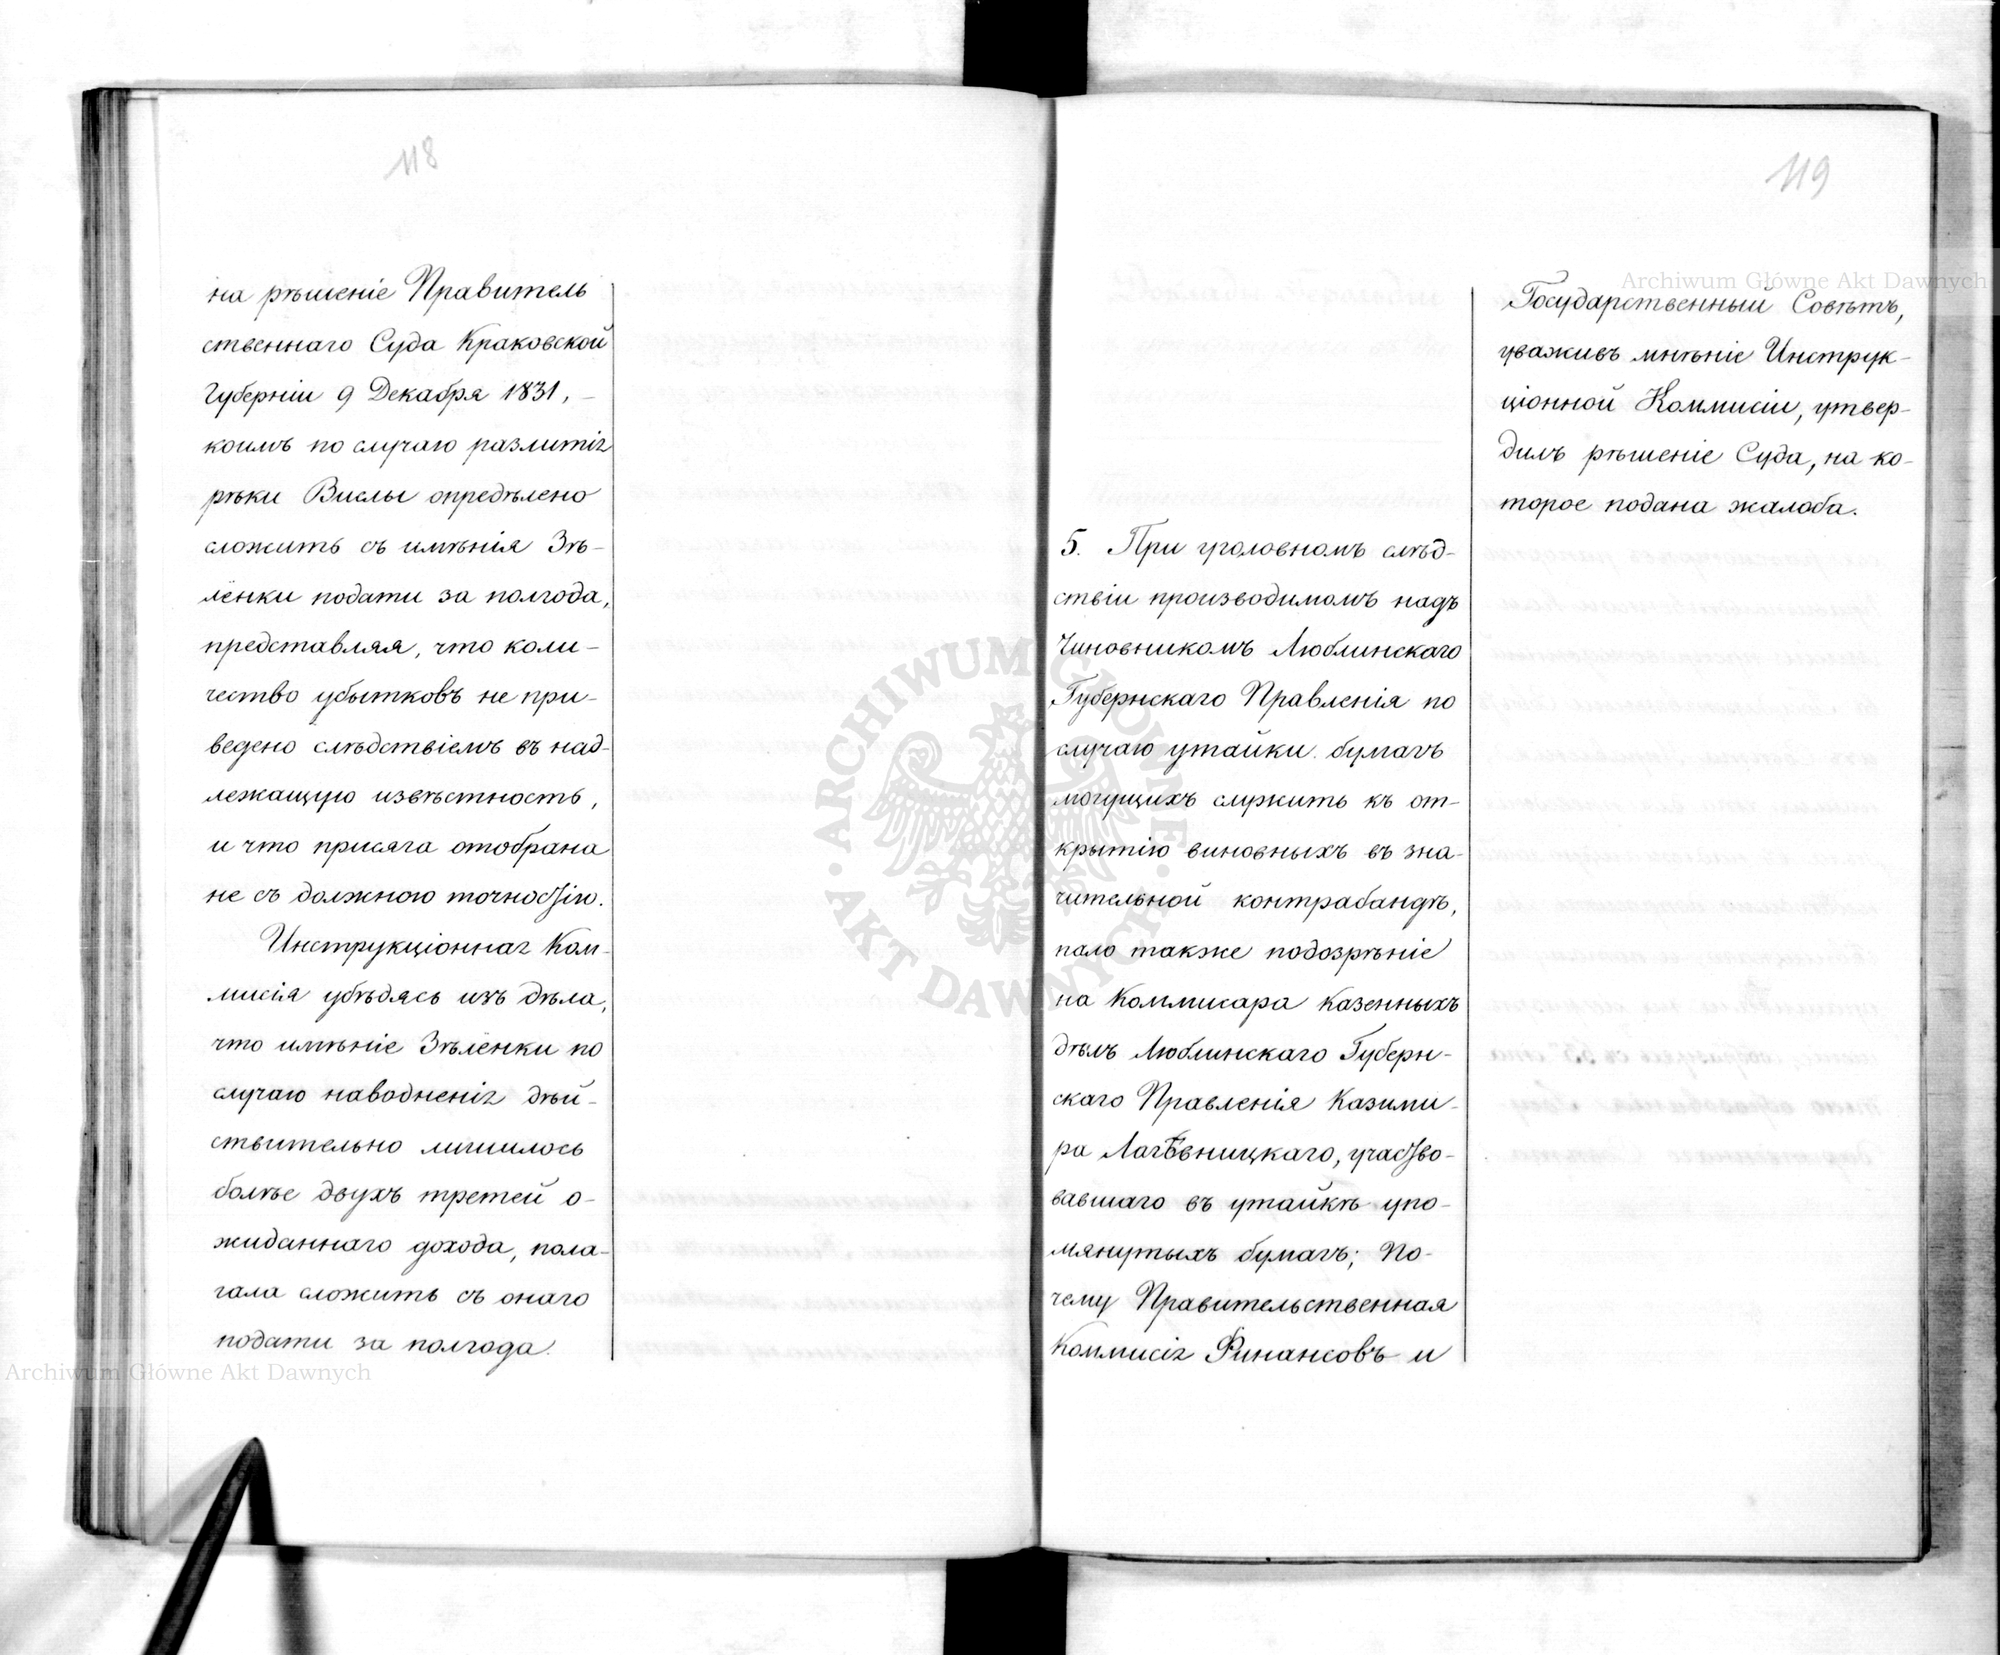 118
на рѣшеніе Правитель
ственнаго Суда Краковской
Губерніи 9 Декабря 1831, –
коимъ по случаю разлитія
рѣки Вислы опредѣлено
сложить съ имѣнія Зѣ–
лёнки подати за полгода,
представляя, что коли–
чество убытковъ не при–
ведено слѣдствіемъ въ над–
лежащую извѣстность,
и что присяга отобрана
не съ должною точностію.
Инструкціонная Ком–
мисія убѣдясь изъ дѣла,
что имѣніе Зѣлёнки по
случаю наводненія дѣй–
ствительно лишилось
болѣе двухъ третей о–
жиданнаго дохода, пола–
гала сложить съ онаго
подати за полгода.
119
5. При уголовномъ слѣд–
ствіи производимомъ надъ
Чиновникомъ Люблинскаго
Губернскаго Правленія по
случаю утайки бумагъ
могущихъ служить къ от–
крытію виновныхъ въ зна–
чительной контрабандѣ,
пало также подозрѣніе
на Коммисара казенныхъ
дѣлъ Люблинскаго Губерн–
скаго Правленія Казими–
ра Лагѣвницкаго, участво–
вавшаго въ утайкѣ упо–
мянутыхъ бумагъ; По–
чему Правительственная
Коммисія Финансовъ и
Государственный Совѣтъ,
уваживъ мнѣніе Инструк–
ціонной Коммисіи, утвер–
дилъ рѣшеніе Суда, на ко–
торое подана жалоба.
Archiwum Główne Akt Dawnych
ARCHIWUM GŁÓWNE · AKT DAWNYCH ·
Archiwum Główne Akt Dawnych